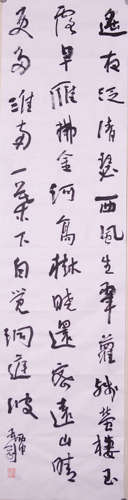 遙夜泛清瑟西風生翠蘿殘螢棲玉
露早雁拂金河高樹曉還密遠山晴
更多淮南一葉下自覺洞庭波